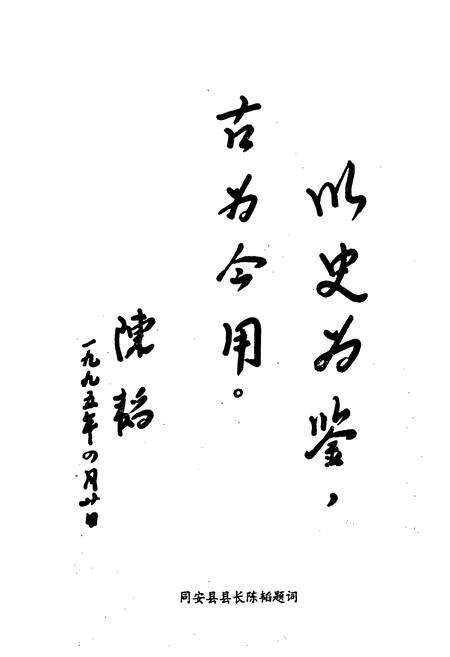 以史为鉴，
古为今用。
陈韬
一九九五年四月廿日
同安县县长陈韬题词